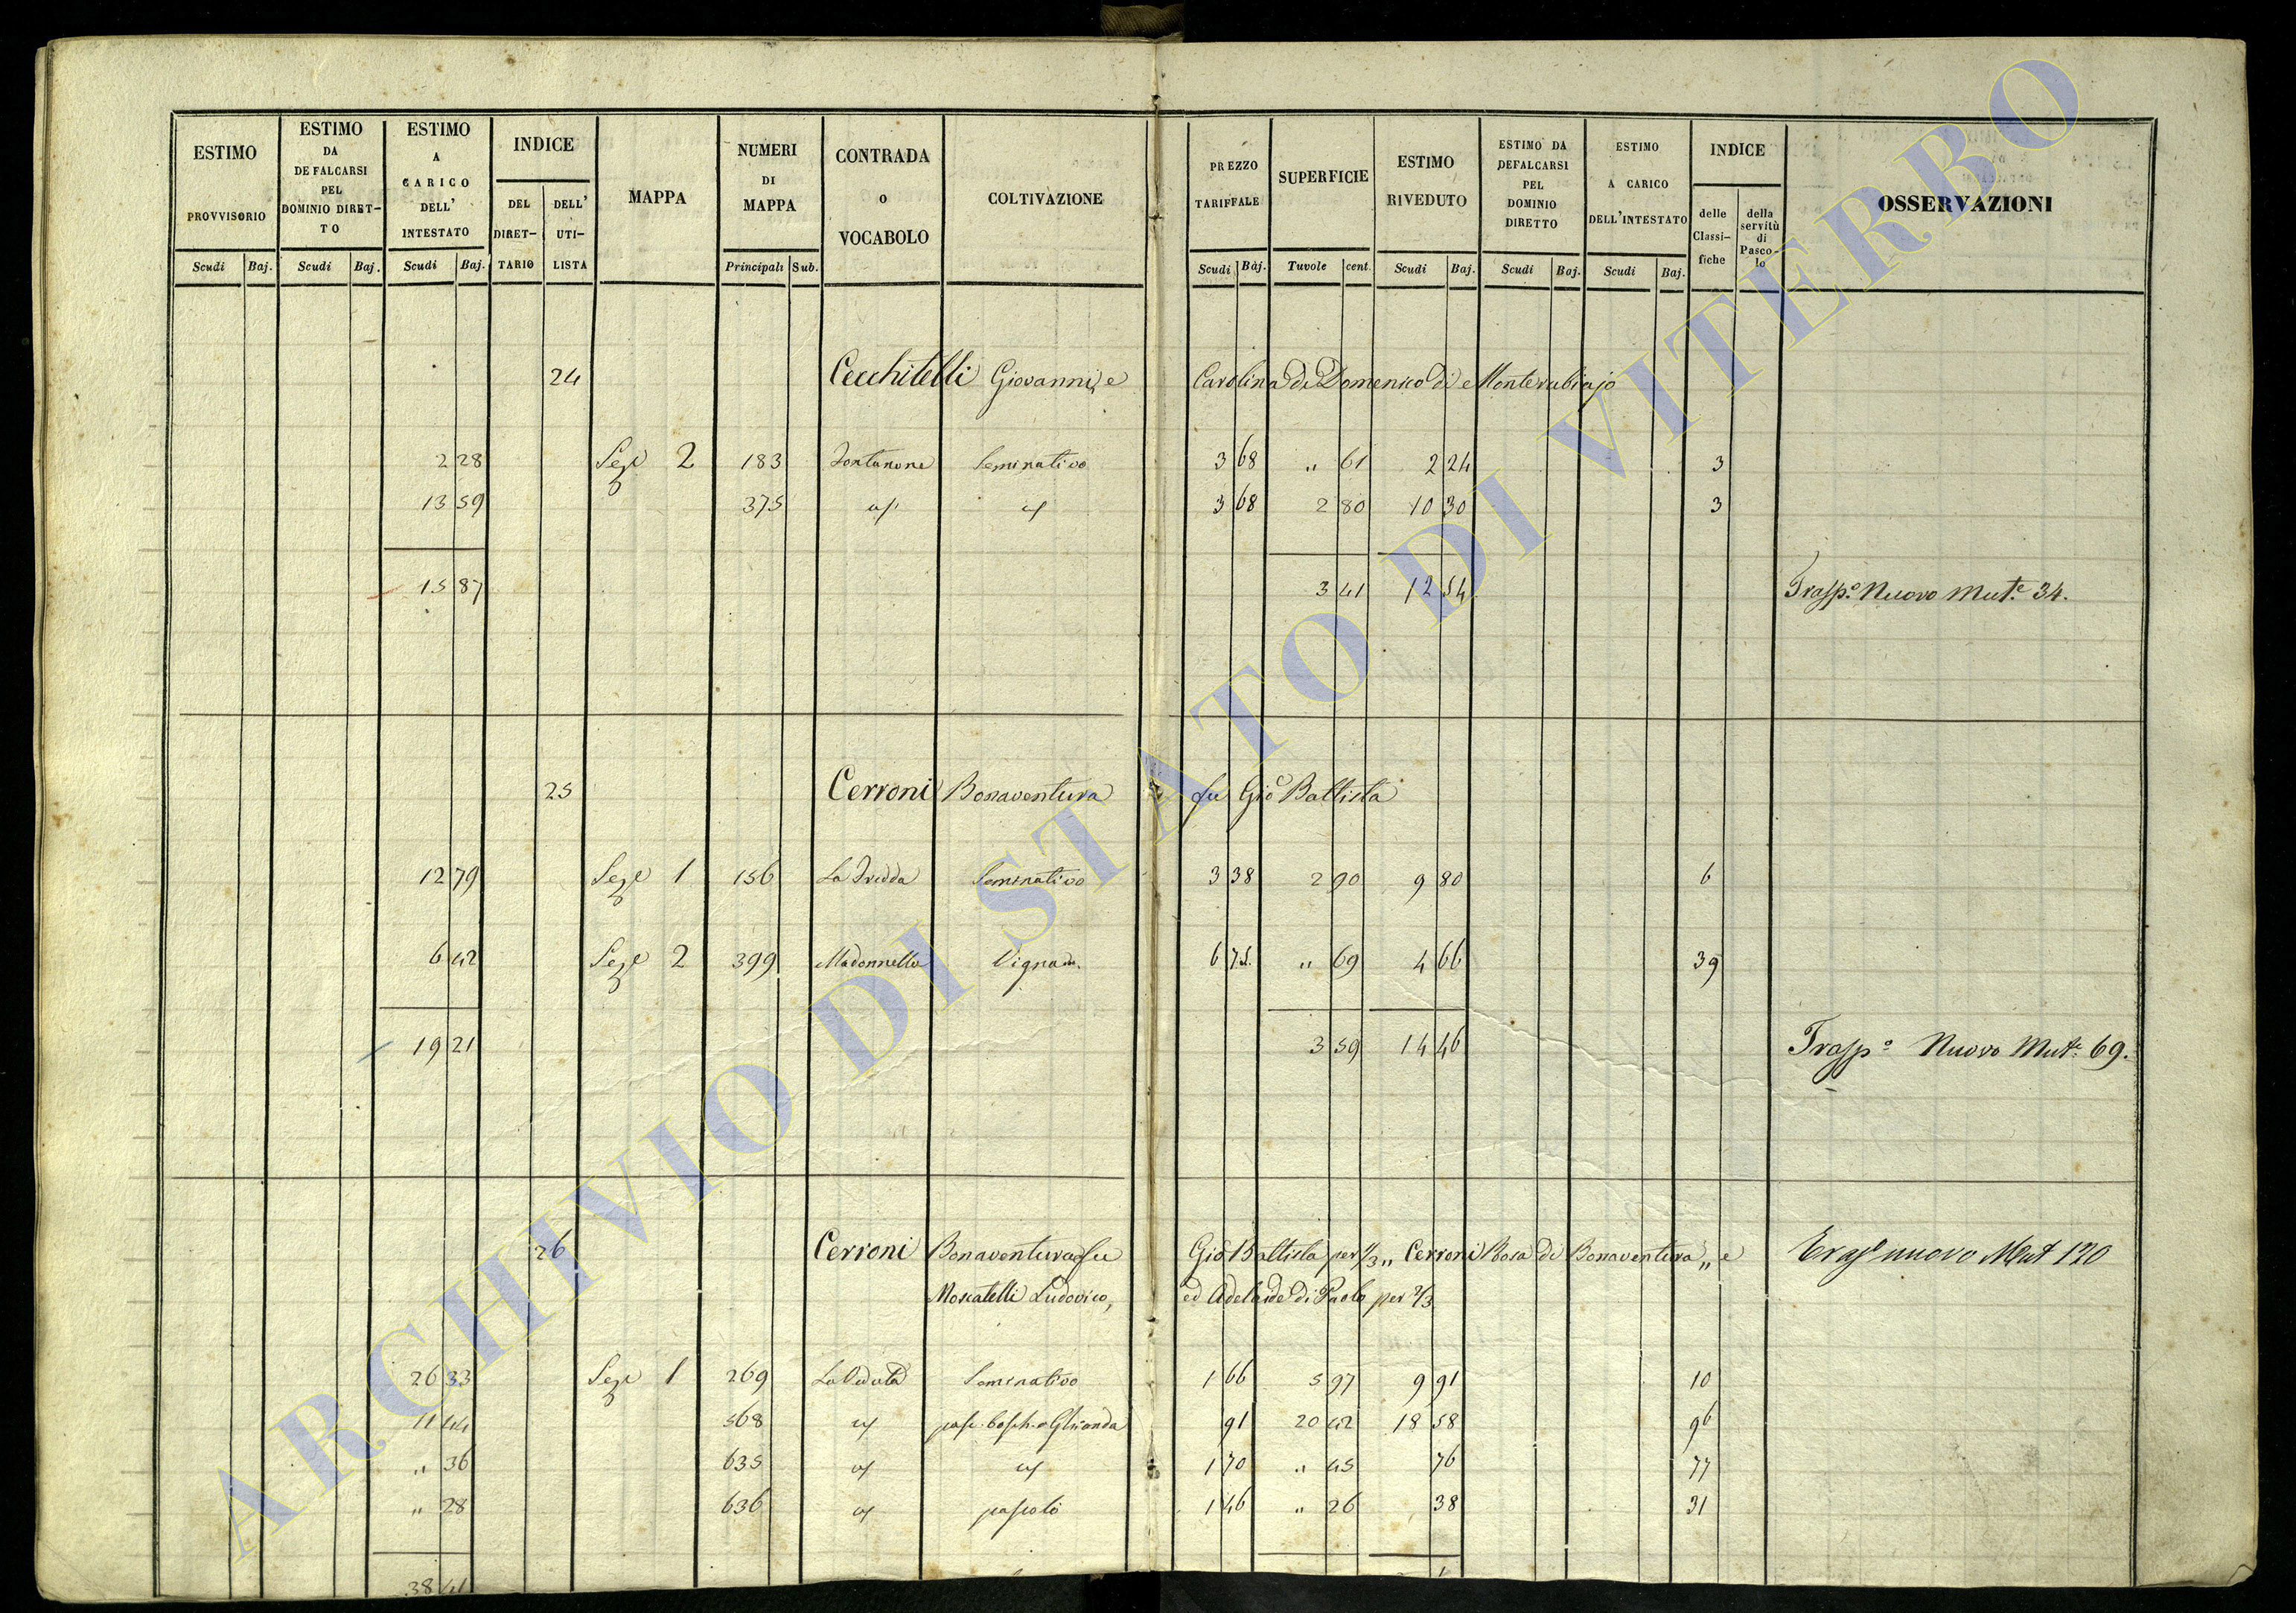 ESTIMO PROVVISORIO
ESTIMO DA DEFALCARSI PEL DOMINIO DIRET-TO
ESTIMO A CARICO DELL' INTESTATO
INDICE
DEL DIRET-TARIO
DELL' UTI-LISTA
MAPPA
NUMERI DI MAPPA
CONTRADA O VOCABOLO
COLTIVAZIONE
PREZZO TARIFFALE
SUPERFICIE
ESTIMO RIVEDUTO
ESTIMO DA DEFALCARSI PEL DOMINIO DIRETTO
ESTIMO A CARICO DELL'INTESTATO
INDICE
delle Classi-fiche
della servitù di Pasco-lo
OSSERVAZIONI
Scudi Baj. Scudi Baj. Scudi Baj. Principali Sub. Scudi Baj. Tuvole cent. Scudi Baj. Scudi Baj. Scudi Baj.
24 Cecchitelli Giovanni, e Carolina di Domenico di Monterubiajo
2 28 Sez.e 2 183 Fontanone Seminativo 3 68 " 61 2 24 3
13 59 375 3 68 2 80 10 30 3
15 87 3 41 12 54 Trasp.o Nuovo Mut.e 34.
25 Cerroni Bonaventura fu Gio Battista
12 79 Sez.e 1 156 Seminativo 3 38 2 90 9 80 6
6 42 Sez.e 2 399 Madonnella Vignato 6 75 " 69 4 66 39
19 21 3 59 14 46 Trasp.o Nuovo Mut.e 69.
26 Cerroni Bonaventura fu Gio Battista per 1/3 " Cerroni Rosa di Bonaventura " e Trasp nuovo Mut 120
Moscatelli Ludovico, ed Adelaide di Paolo per 2/3
26 33 Sez.e 1 269 La Veduta Seminativo 1 66 5 97 9 91 10
11 44 568 pasc. bosch. e Ghianda 91 20 42 18 58 96
" 36 635 1 70 " 45 76 77
" 28 636 pascolo 1 46 " 26 38 31
38 41
ARCHIVIO DI STATO DI VITERBO